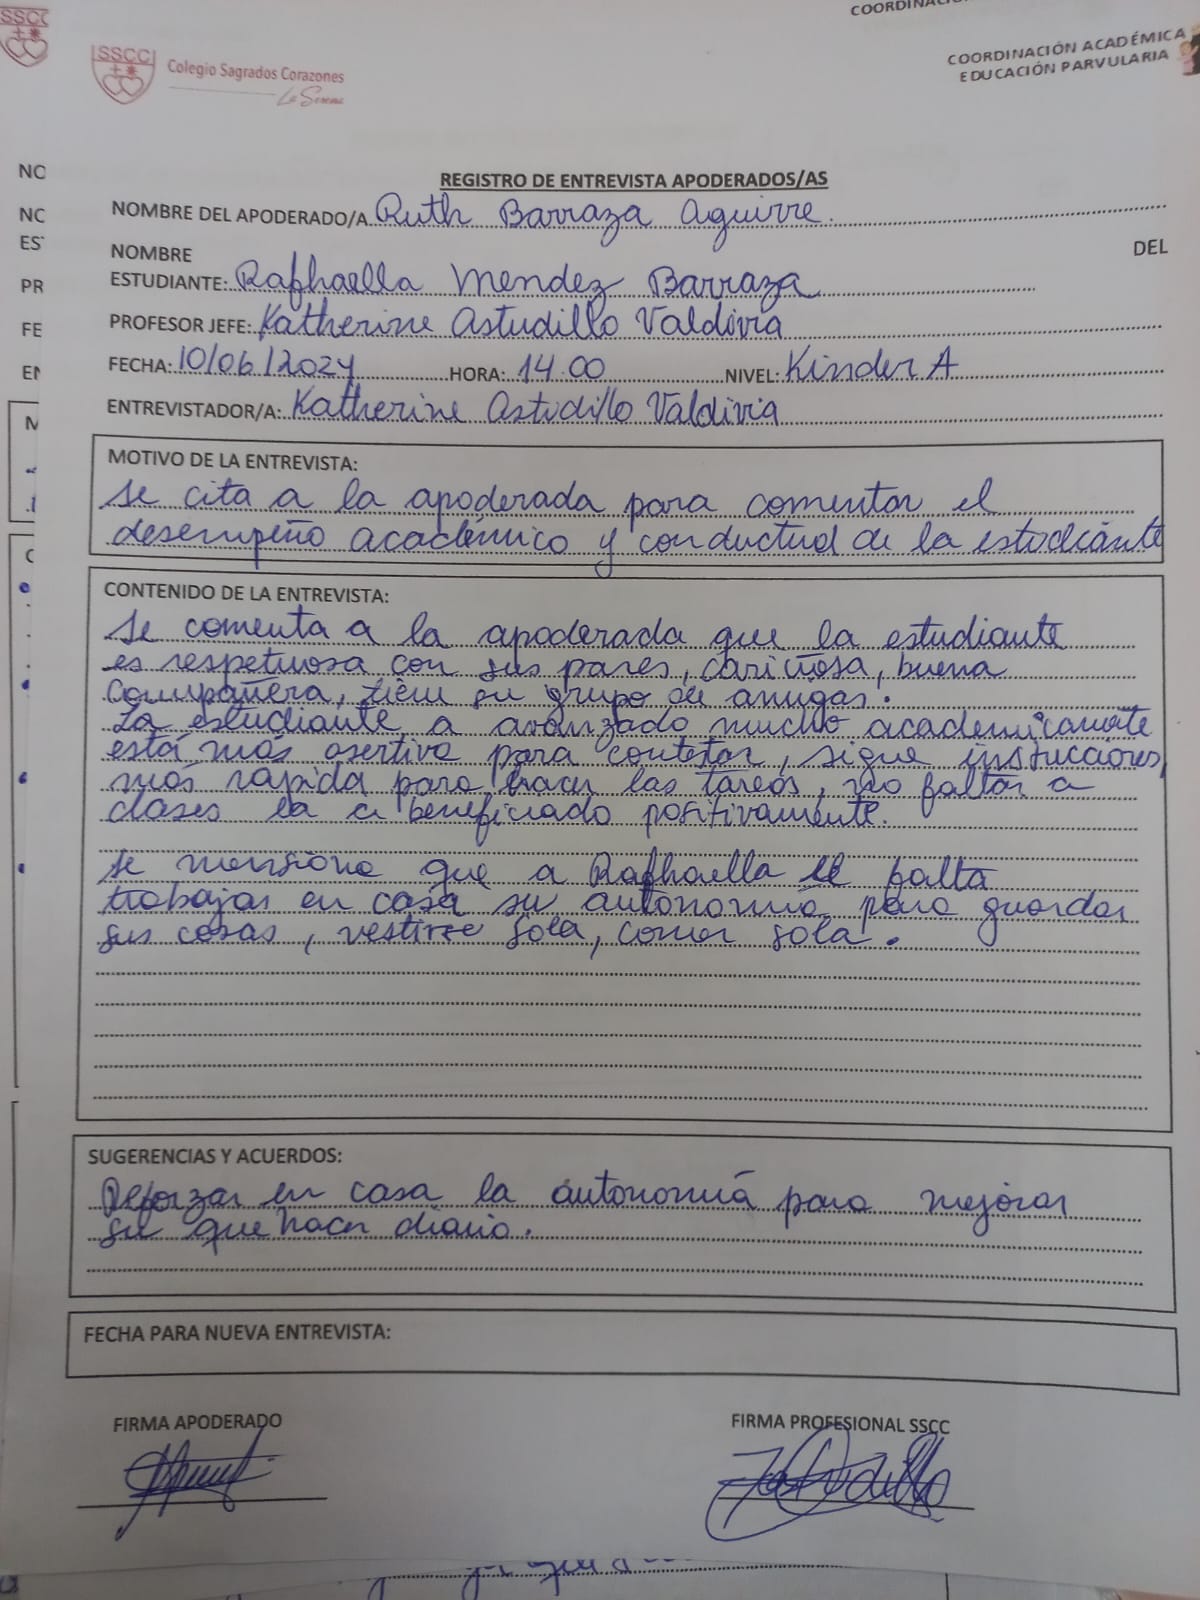 SSCC
SSCC
Colegio Sagrados Corazones
La Serena
COORDINACIÓN ACADÉMICA
EDUCACIÓN PARVULARIA
REGISTRO DE ENTREVISTA APODERADOS/AS
NOMBRE DEL APODERADO/A Ruth Barraza Aguirre.
NOMBRE DEL
ESTUDIANTE: Raphaella Mendez Barraza
PROFESOR JEFE: Katherine Astudillo Valdivia
FECHA: 10/06/2024 HORA: 14.00 NIVEL: Kinder A
ENTREVISTADOR/A: Katherine Astudillo Valdivia
MOTIVO DE LA ENTREVISTA:
Se cita a la apoderada para comentar el
desempeño académico y conductual de la estudiante
CONTENIDO DE LA ENTREVISTA:
Se comenta a la apoderada que la estudiante
es respetuosa con sus pares, cariñosa, buena
compañera, tiene su grupo de amigas.
La estudiante a avanzado mucho academicamente
está más asertiva para contetar, sigue instrucciones,
más rapida para hacer las tareas, no faltar a
clases la a beneficiado positivamente.
Se mensiona que a Raphaella le falta
trabajar en casa su autonomía para guardar
sus cosas, vestirse sola, comer sola.
SUGERENCIAS Y ACUERDOS:
Reforzar en casa la autonomía para mejorar
su que hacer diario.
FECHA PARA NUEVA ENTREVISTA:
FIRMA APODERADO FIRMA PROFESIONAL SSCC